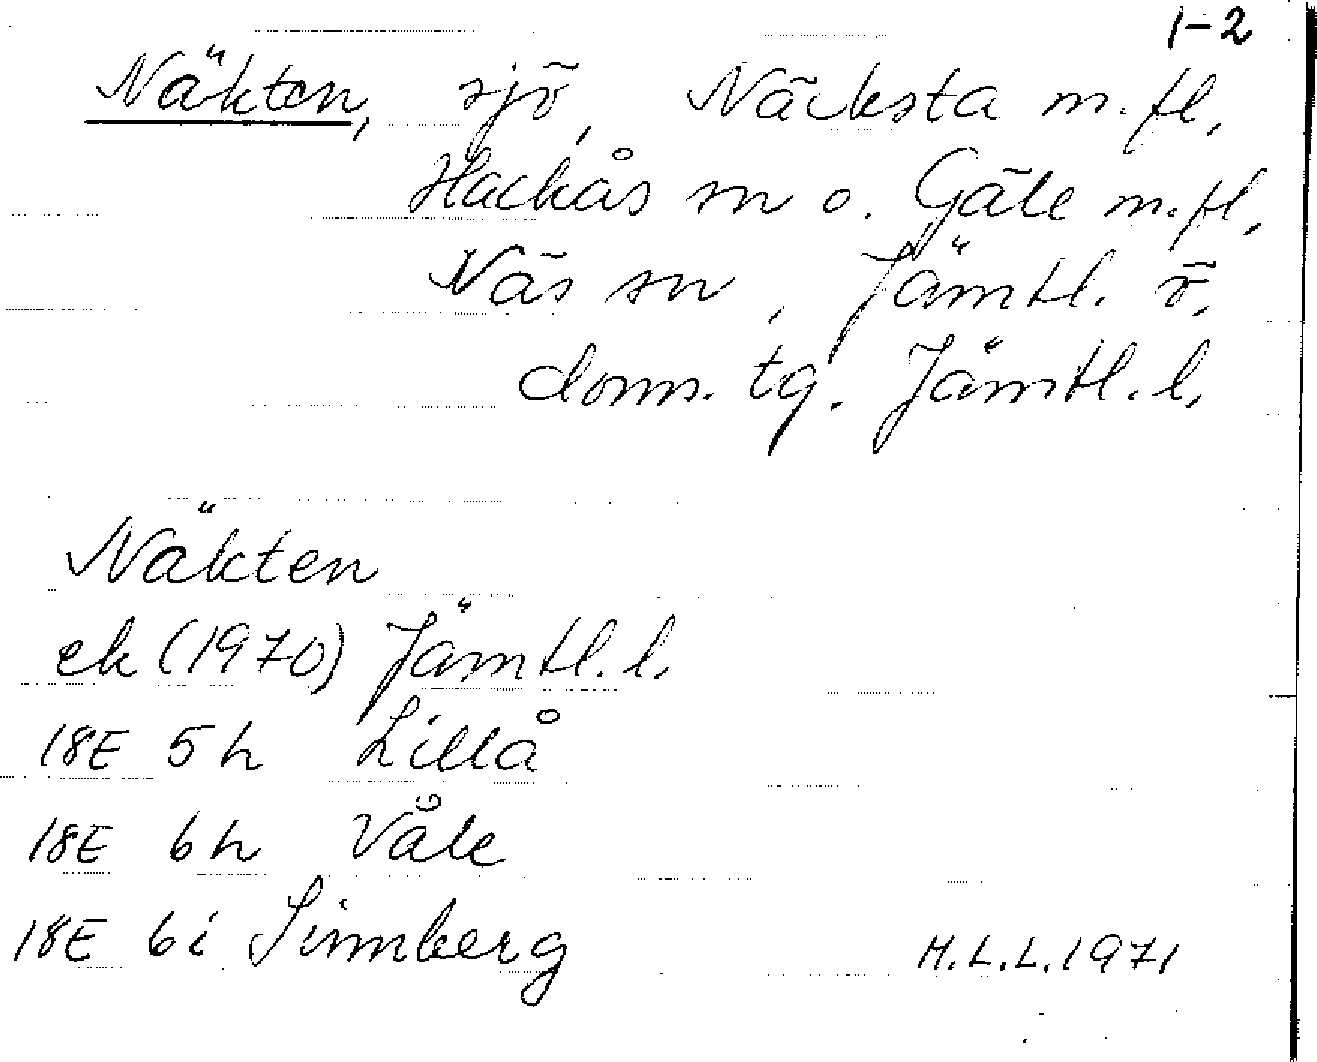 1-2
Näkten, sjö, Näcksta m.fl.
Hackås sn o. Gäle m.fl.
Näs sn, Jämtl. ö.
doms. tg. Jämtl. l.
Näkten
ek (1970) Jämtl. l.
18E 5h Lillå
18E 6h Våle
18E 6i Sinnberg
H.L.L. 1971